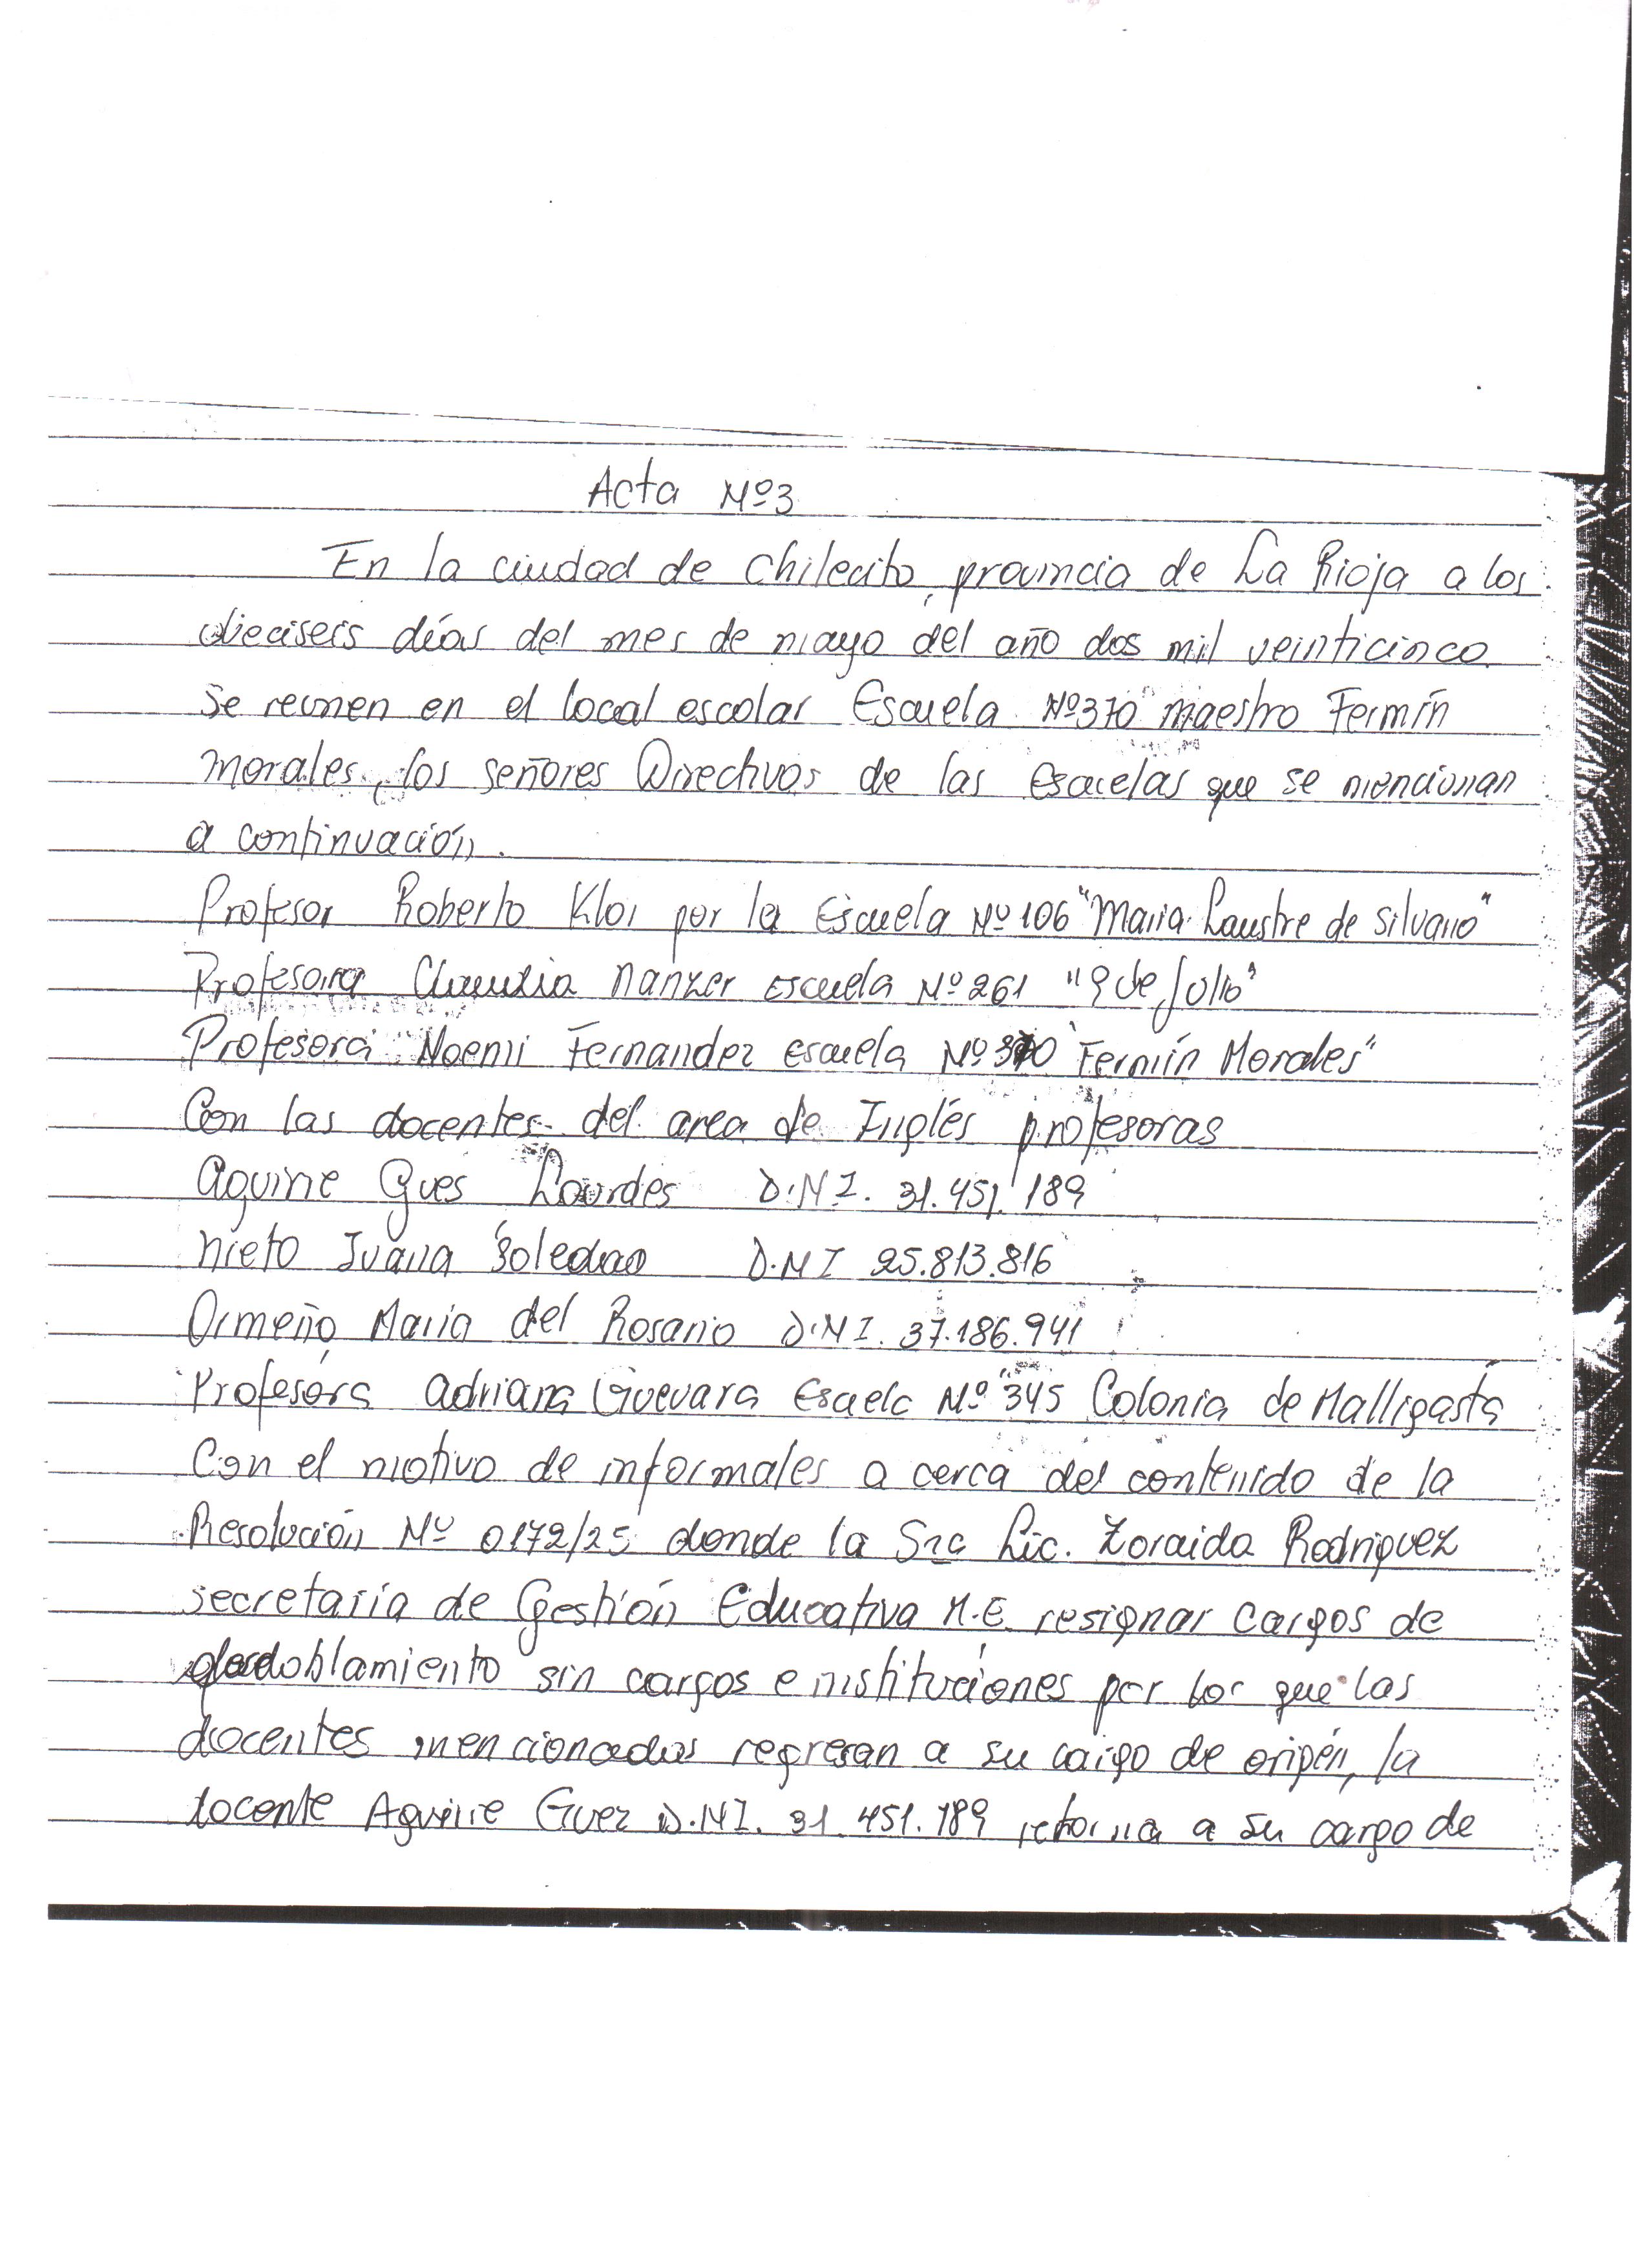 Acta Nº3
En la ciudad de Chilecito, provincia de La Rioja a los
dieciseis días del mes de mayo del año dos mil veinticinco
se reunen en el local escolar Escuela Nº370 "Maestro Fermín
Morales, los señores Directivos de las Escuelas que se mencionan
a continuación.
Profesor Roberto Kloi por la Escuela Nº 106 "Maria Laustre de Silvano"
Profesora Claudia Nanzer escuela Nº 261 "9 de Julio"
Profesora Noemi Fernandez escuela Nº 370 "Fermín Morales"
Con las docentes del area de Inglés profesoras
Aguirre Gues Lourdes D.N.I. 31.451.189
Nieto Ivana Soledad D.N.I 25.813.816
Ormeño Maria del Rosario D.N.I. 37.186.941
Profesora Adriana Guevara Escuela Nº 345 Colonia de Malligasta
Con el motivo de informales a cerca del contenido de la
Resolución Nº 0172/25 donde la Sra Lic. Zoraida Rodriguez
secretaria de Gestión Educativa M.E. resignar cargos de
desdoblamiento sin cargos e instituciones por los que las
docentes mencionadas regresan a su cargo de origén, la
docente Aguirre Guez D.N.I. 31.451.189 retorna a su cargo de